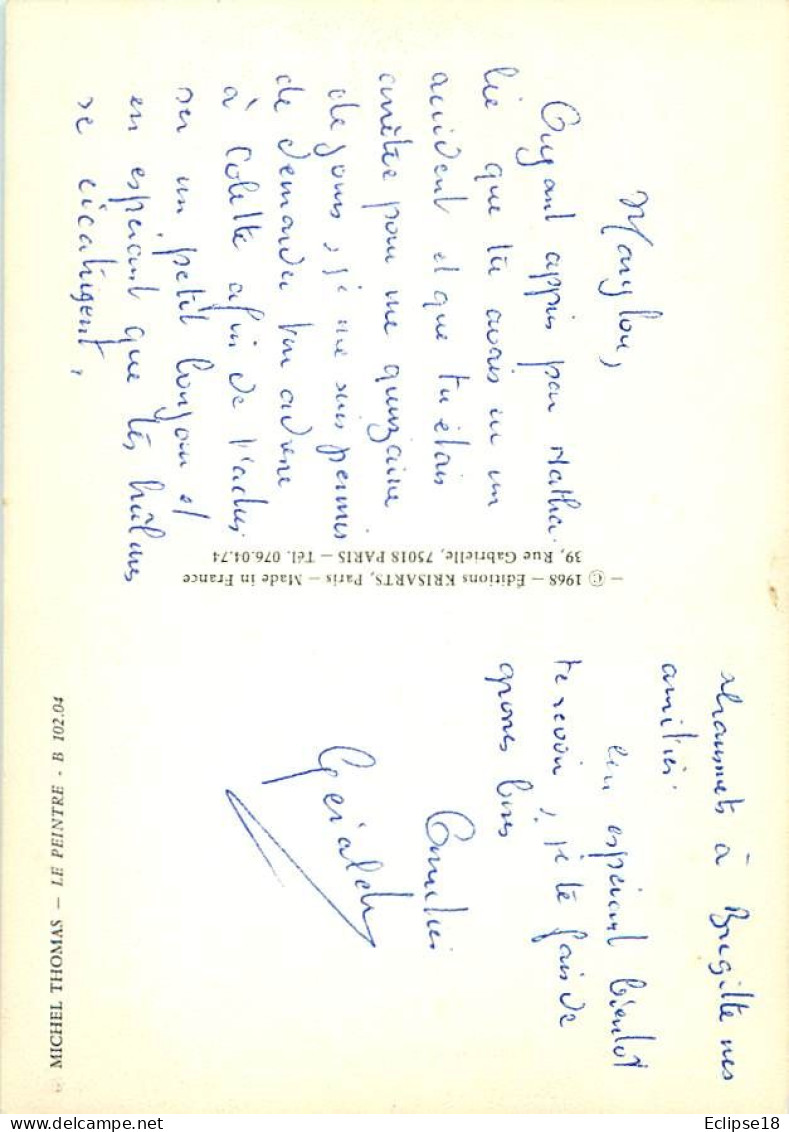 Marylou,
Ayant appris par Natha-
lie que tu avais eu un
accident et que tu étais
arrêtée pour une quinzaine
de jours, je me suis permis
de demander ton adresse
à Colette afin de t'adres
ser un petit bonjour et
en espérant que tes brûlures
se cicatrisent.
transmets à Brigitte mes
amitiés.
En espérant bientôt
te revoir, je te fais de
grosses bises
Amitiés
© 1968 – Éditions KRISARTS, Paris – Made in France –
39, Rue Gabrielle, 75018 PARIS – Tél. 076.04.74
MICHEL THOMAS – LE PEINTRE - B 102.04
Eclipse18